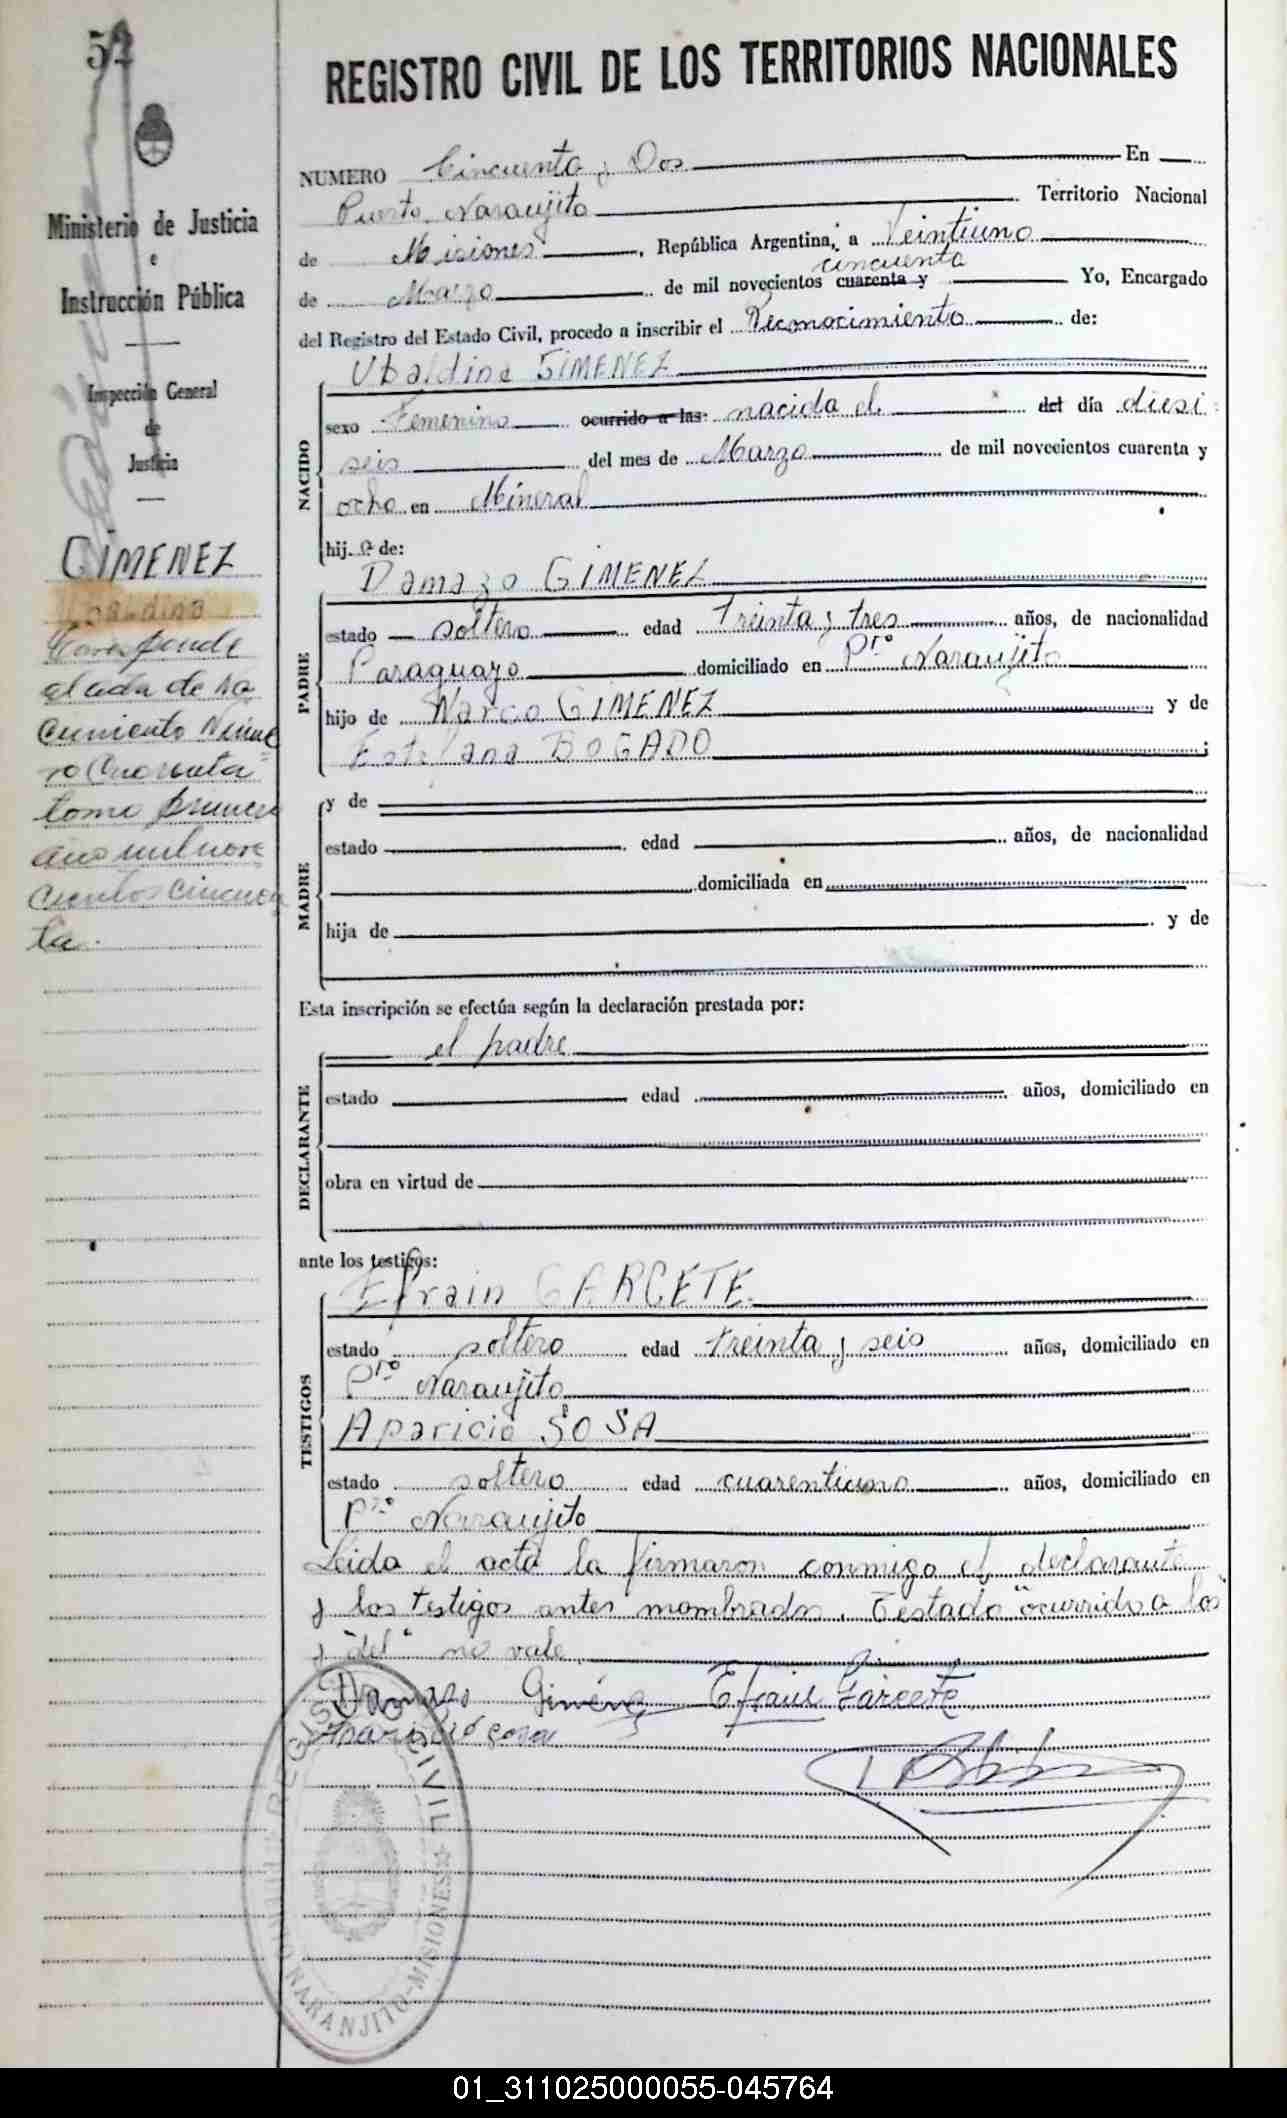 52
REGISTRO CIVIL DE LOS TERRITORIOS NACIONALES
Ministerio de Justicia
e
Instrucción Pública
Inspección General
de
Justicia
GIMENEZ
Ubaldina
Corresponde
al acta de na
cimiento Núme
ro Cuarenta
tomo primero
año mil nove
cientos cincuen
ta.
NUMERO Cincuenta y Dos En
Puerto Naranjito Territorio Nacional
de Misiones, República Argentina, a Veintiuno
cincuenta
de Marzo de mil novecientos cuarenta y Yo, Encargado
del Registro del Estado Civil, procedo a inscribir el Reconocimiento de:
NACIDO
Ubaldina GIMENEZ
sexo Femenino ocurrido a las: nacida el del día diesi
seis del mes de Marzo de mil novecientos cuarenta y
ocho en Mineral
hij.a de:
PADRE
Damazo GIMENEZ
estado soltero edad treinta y tres años, de nacionalidad
Paraguayo domiciliado en Pto Naranjito
hijo de Narco GIMENEZ y de
Estefana BOGADO;
MADRE
y de
estado edad años, de nacionalidad
domiciliada en
hija de y de
Esta inscripción se efectúa según la declaración prestada por:
DECLARANTE
el padre
estado edad años, domiciliado en
obra en virtud de
ante los testigos:
TESTIGOS
Efrain GARCETE
estado soltero edad treinta y seis años, domiciliado en
Pto Naranjito
Aparicio SOSA
estado soltero edad cuarentiuno años, domiciliado en
Pto Naranjito
Leida el acta la firmaron conmigo el declarante
y los testigos antes nombrados. Testado "ocurrido a las"
y "del" no vale.
Damazo Giménez Efrain Garcete
Aparicio Sosa
REGISTRO CIVIL
NARANJITO-MISIONES
01_311025000055-045764